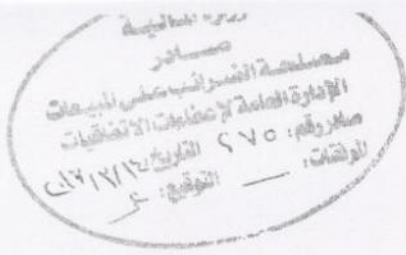 وزارة المالية
صادر
مصلحة الضرائب على المبيعات
الإدارة العامة لإعفاءات الاتفاقيات
صادر رقم: ٢٧٥ التاريخ:
المرفقات: التوقيع: